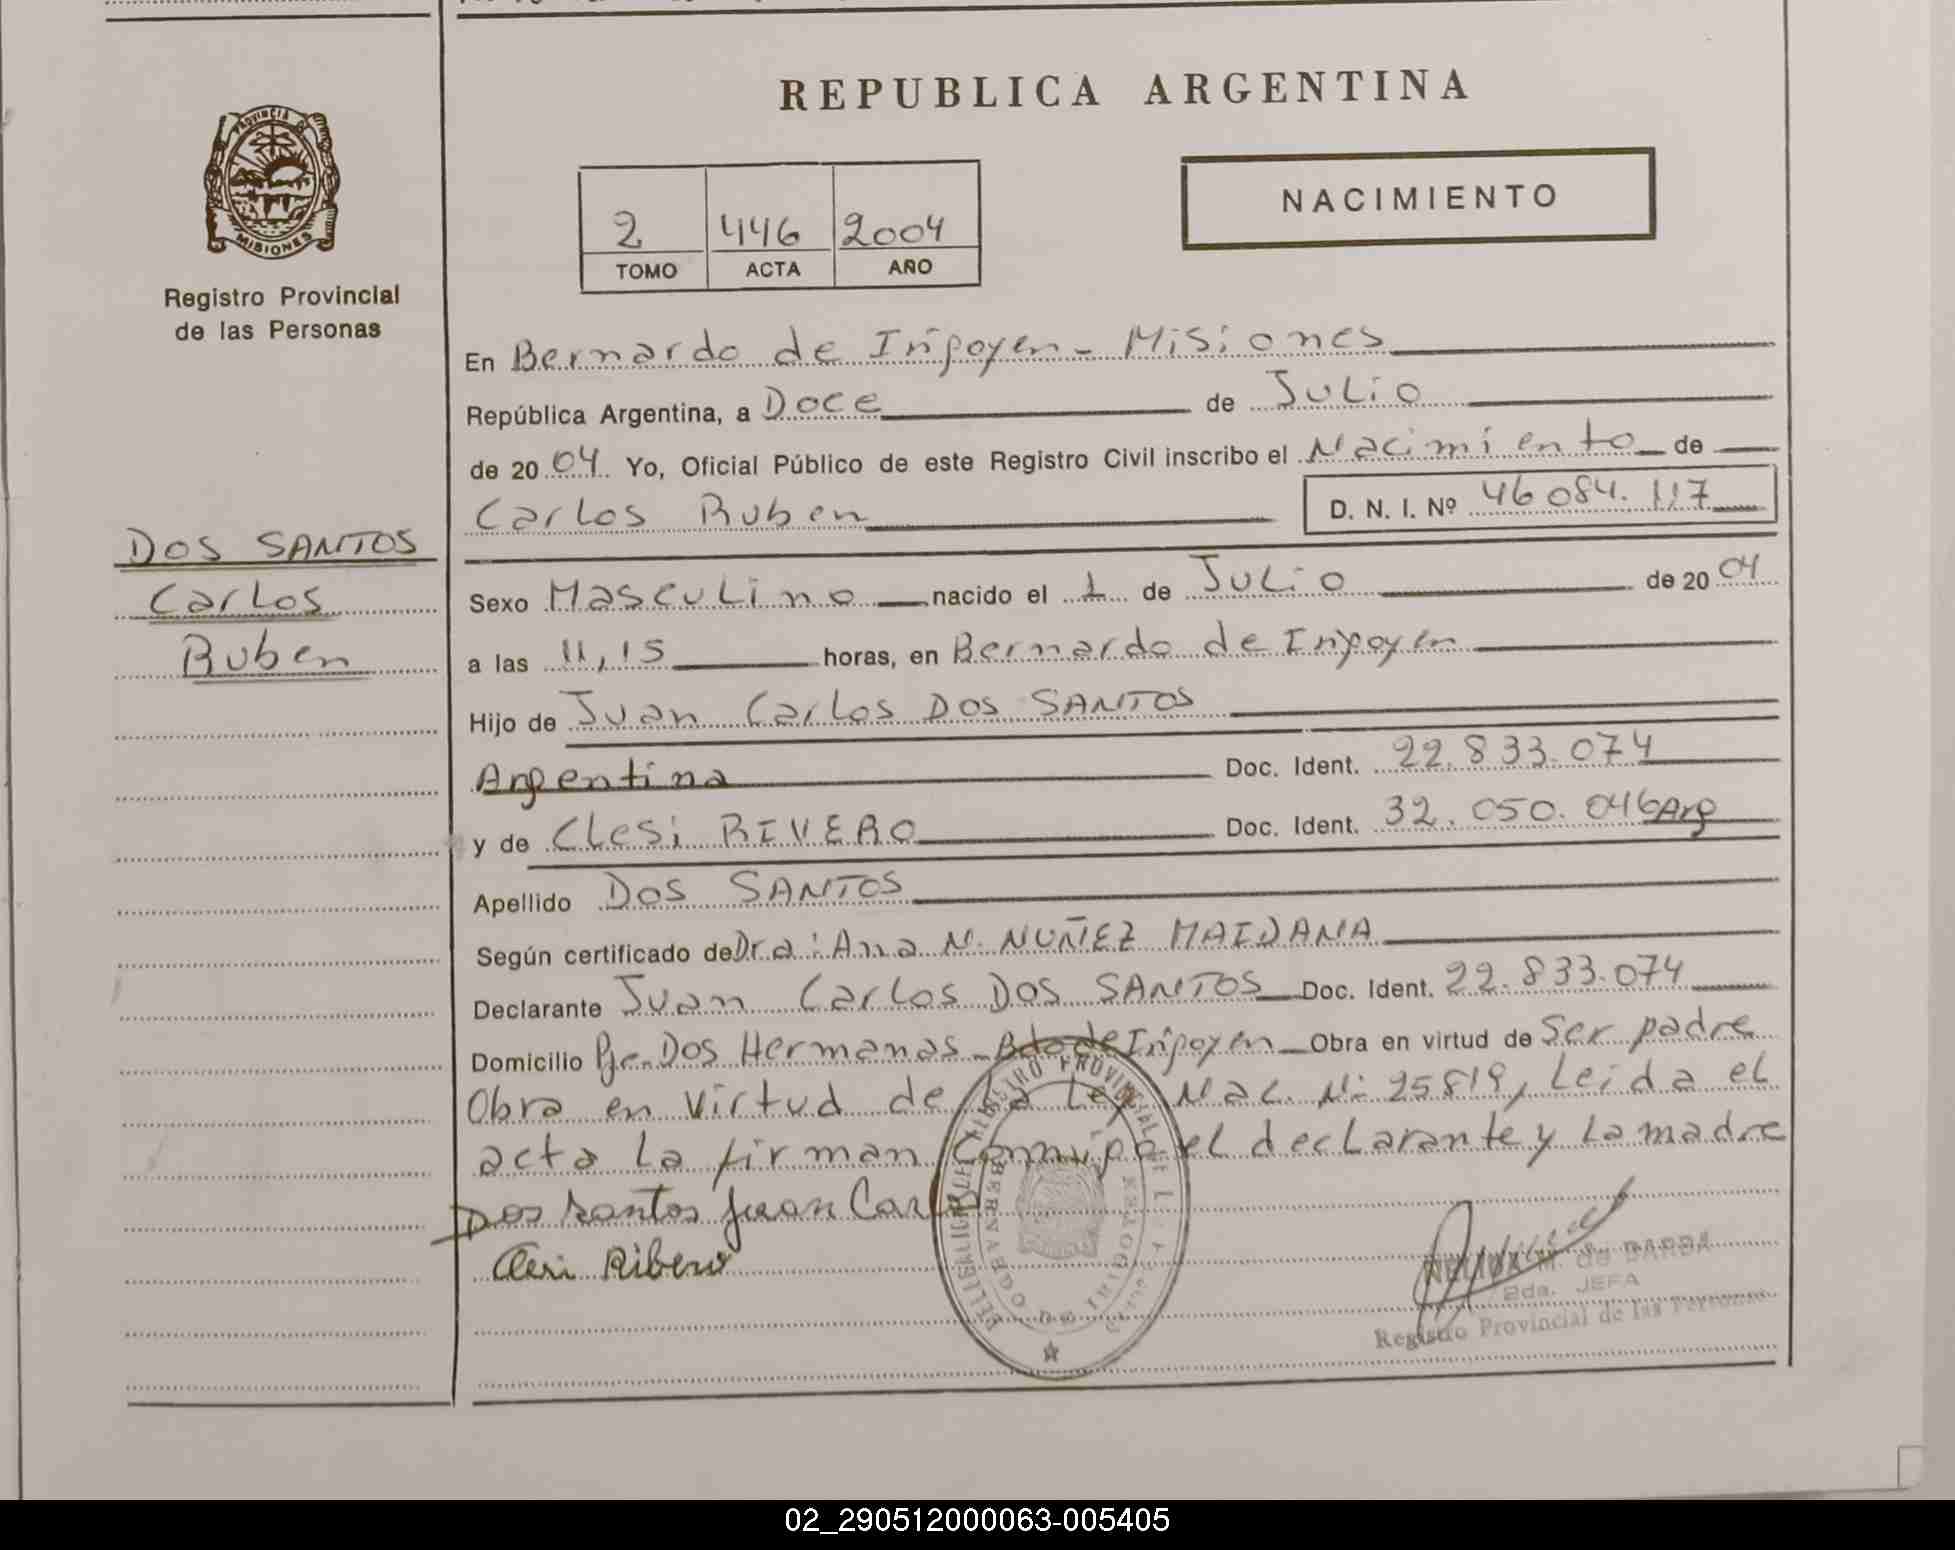 REPUBLICA ARGENTINA
PROVINCIA DE
MISIONES
Registro Provincial
de las Personas
2 446 2004
TOMO ACTA AÑO
NACIMIENTO
DOS SANTOS
Carlos
Ruben
En Bernardo de Irigoyen - Misiones
República Argentina, a Doce de Julio
de 2004. Yo, Oficial Público de este Registro Civil inscribo el Nacimiento de
Carlos Ruben D. N. I. Nº 46084.117
Sexo Masculino nacido el 1 de Julio de 2004
a las 11,15 horas, en Bernardo de Irigoyen
Hijo de Juan Carlos DOS SANTOS
Argentina Doc. Ident. 22.833.074
y de Clesi RIVERO Doc. Ident. 32.050.046 Arg
Apellido DOS SANTOS
Según certificado de Dra: Ana N. NUÑEZ MAIDANA
Declarante Juan Carlos DOS SANTOS Doc. Ident. 22.833.074
Domicilio Pje. Dos Hermanas - Bdo de Irigoyen Obra en virtud de Ser padre
Obra en virtud de la Ley Nac. Nº 25819, Leida el
acta la firman conmigo el declarante y la madre
Dos Santos Juan Carlos
Ribero
REGISTRO PROVINCIAL DE L
BERNARDO DE IRIGOYEN
M. de BARBA
2da. JEFA
Registro Provincial de las Personas
02_290512000063-005405